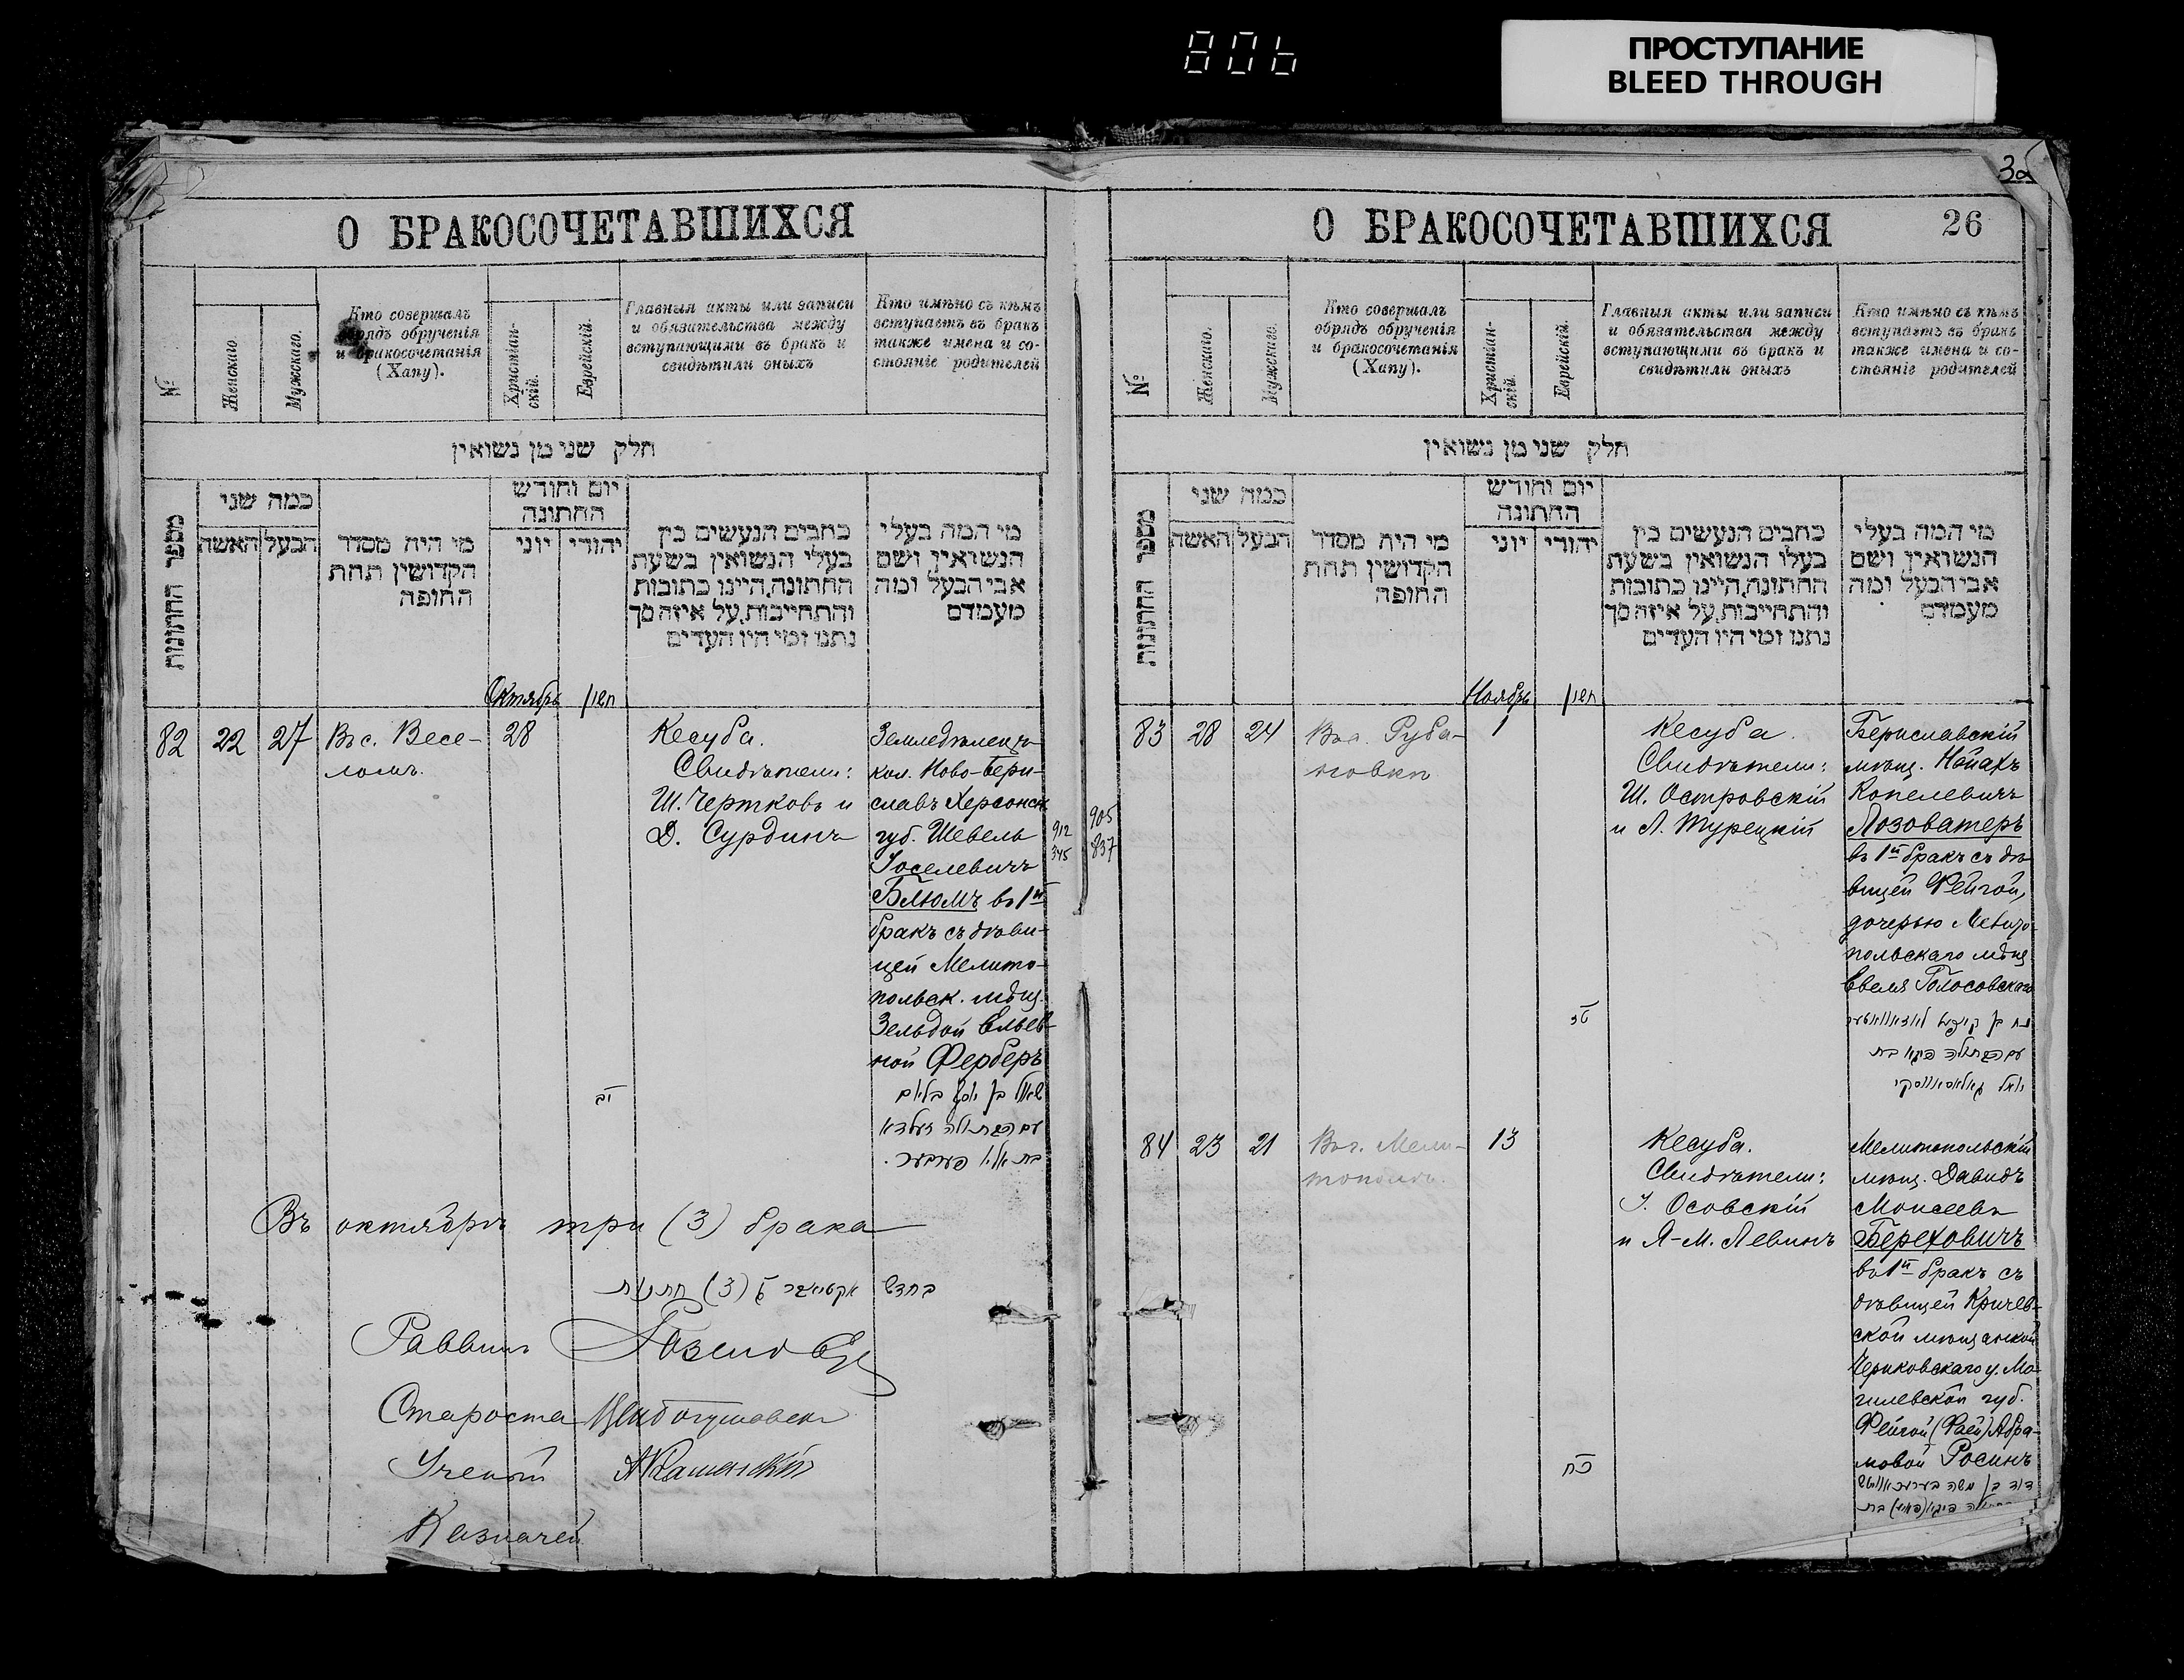 806
ПРОСТУПАНИЕ
BLEED THROUGH
О БРАКОСОЧЕТАВШИХСЯ
№
Женскаго
Мужскаго.
Кто совершалъ
обрядъ обрученія
и бракосочетанія
(Хапу).
Христіан-
скій.
Еврейскій.
Главныя акты или записи
и обязательства между
вступающими въ бракъ и
свидѣтили оныхъ
Кто имѣно съ кѣмъ
вступаетъ въ бракъ
также имена и со-
стояніе родителей
חלק שני מן נשואין
מספר החתונות
כמה שני
הבעל האשה
מי היה מסדר
הקדושין תחת
החופה
יום וחודש
החתונה
יהודי יוני
כתבים הנעשים בין
בעלי הנשואין בשעת
החתונה, היינו כתובות
והתחייבות, על איזה סך
נתנו ומי היו העדים
מי המה בעלי
הנשואין ושם
אבי הבעל ומה
מעמדם
Октябрь
חשון
82 22 27
Въ с. Весе-
ломъ.
28
יב
Кесуба.
Свидѣтели:
Ш. Чертковъ и
Д. Сурдинъ
Земледѣлецъ
кол. Ново-Бери-
славъ Херсонск.
губ. Шевель
Іоселевичъ
Блюмъ въ 1й
бракъ съ дѣви-
цей Мелито-
польск. мѣщ.
Зельдой Ельев-
ной Ферберъ
שאול בן יוסף בלום
עם הבתולה זעלדא
בת אלי' פערבער.
912
345
905
837
Въ октябрѣ три (3) брака
בחדש אקטיאבר ג (3) חתונות
Раввинъ
Староста
Ученый
Казначей
О БРАКОСОЧЕТАВШИХСЯ
26
№
Женскаго.
Мужскаго.
Кто совершалъ
обрядъ обрученія
и бракосочетанія
(Хапу).
Христіан-
скій.
Еврейскій.
Главныя акты или записи
и обязательства между
вступающими въ бракъ и
свидѣтили оныхъ
Кто имѣно съ кѣмъ
вступаетъ въ бракъ
также имена и со-
стояніе родителей
חלק שני מן נשואין
מספר החתונות
כמה שני
הבעל האשה
מי היה מסדר
הקדושין תחת
החופה
יום וחודש
החתונה
יהודי יוני
כתבים הנעשים בין
בעלי הנשואין בשעת
החתונה, היינו כתובות
והתחייבות, על איזה סך
נתנו ומי היו העדים
מי המה בעלי
הנשואין ושם
אבי הבעל ומה
מעמדם
Ноябрь
חשון
83 28 24
Въ с. Руба-
новкѣ
1
טז
Кесуба.
Свидѣтели:
Ш. Островскій
и Л. Турецкій
Бериславскій
мѣщ. Нойахъ
Копелевичъ
Лозоватеръ
въ 1й бракъ съ дѣ-
вицей Фейгой,
дочерью Мелито-
польскаго мѣщ.
Евеля Голосовскаго
נח בן קאפל לאזאוואטער
עם הבתולה פיגא בת
יואל גאלאסאווסקי
84 23 21
Въ г. Мели-
тополѣ.
13
כח
Кесуба.
Свидѣтели:
І. Осовскій
и Я-М. Левинъ
Мелитопольскій
мѣщ. Давидъ
Моисеевъ
Береховичъ
въ 1й бракъ съ
дѣвицей Кричев-
ской мѣщанкой
Чериковскаго у. Мо-
гилевской губ.
Фейгой (Фаей) Абра-
мовой Росинъ
דוד בן משה בערעכאוויטש
פיגא (פאיי) בת